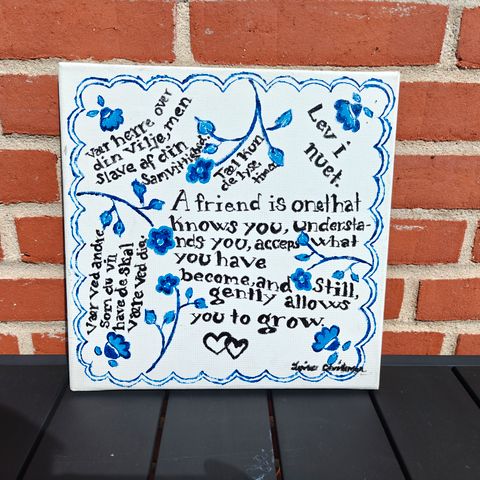 Vær herre over
din vilje, men
slave af din
Samvittighed.
Tæl kun
de lyse
timer
Lev i
nuet.
A friend is onethat
knows you, understa-
nds you, accepts what
you have
become, and still,
gently allows
you to grow.
Vær ved andre
som du vil
have de skal
være ved dig.